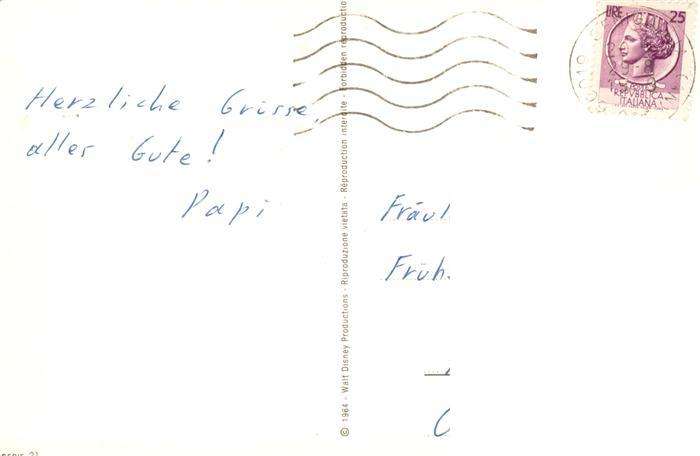 Herzliche Grüsse,
alles Gute!
Papi
© 1964 - Walt Disney Productions - Riproduzione vietata - Réproduction interdite - Forbidden reproduction
LIRE 25
REPVBBLICA
ITALIANA
Fräul
Früh.